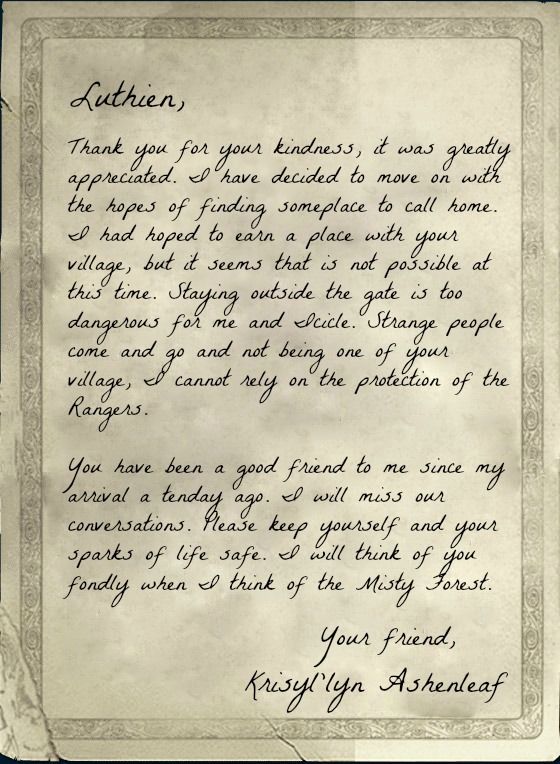 Luthien,
Thank you for your kindness, it was greatly
appreciated. I have decided to move on with
the hopes of finding someplace to call home.
I had hoped to earn a place with your
village, but it seems that is not possible at
this time. Staying outside the gate is too
dangerous for me and Icicle. Strange people
come and go and not being one of your
village, I cannot rely on the protection of the
Rangers.
You have been a good friend to me since my
arrival a tenday ago. I will miss our
conversations. Please keep yourself and your
sparks of life safe. I will think of you
fondly when I think of the Misty Forest.
Your friend,
Krisyl'lyn Ashenleaf